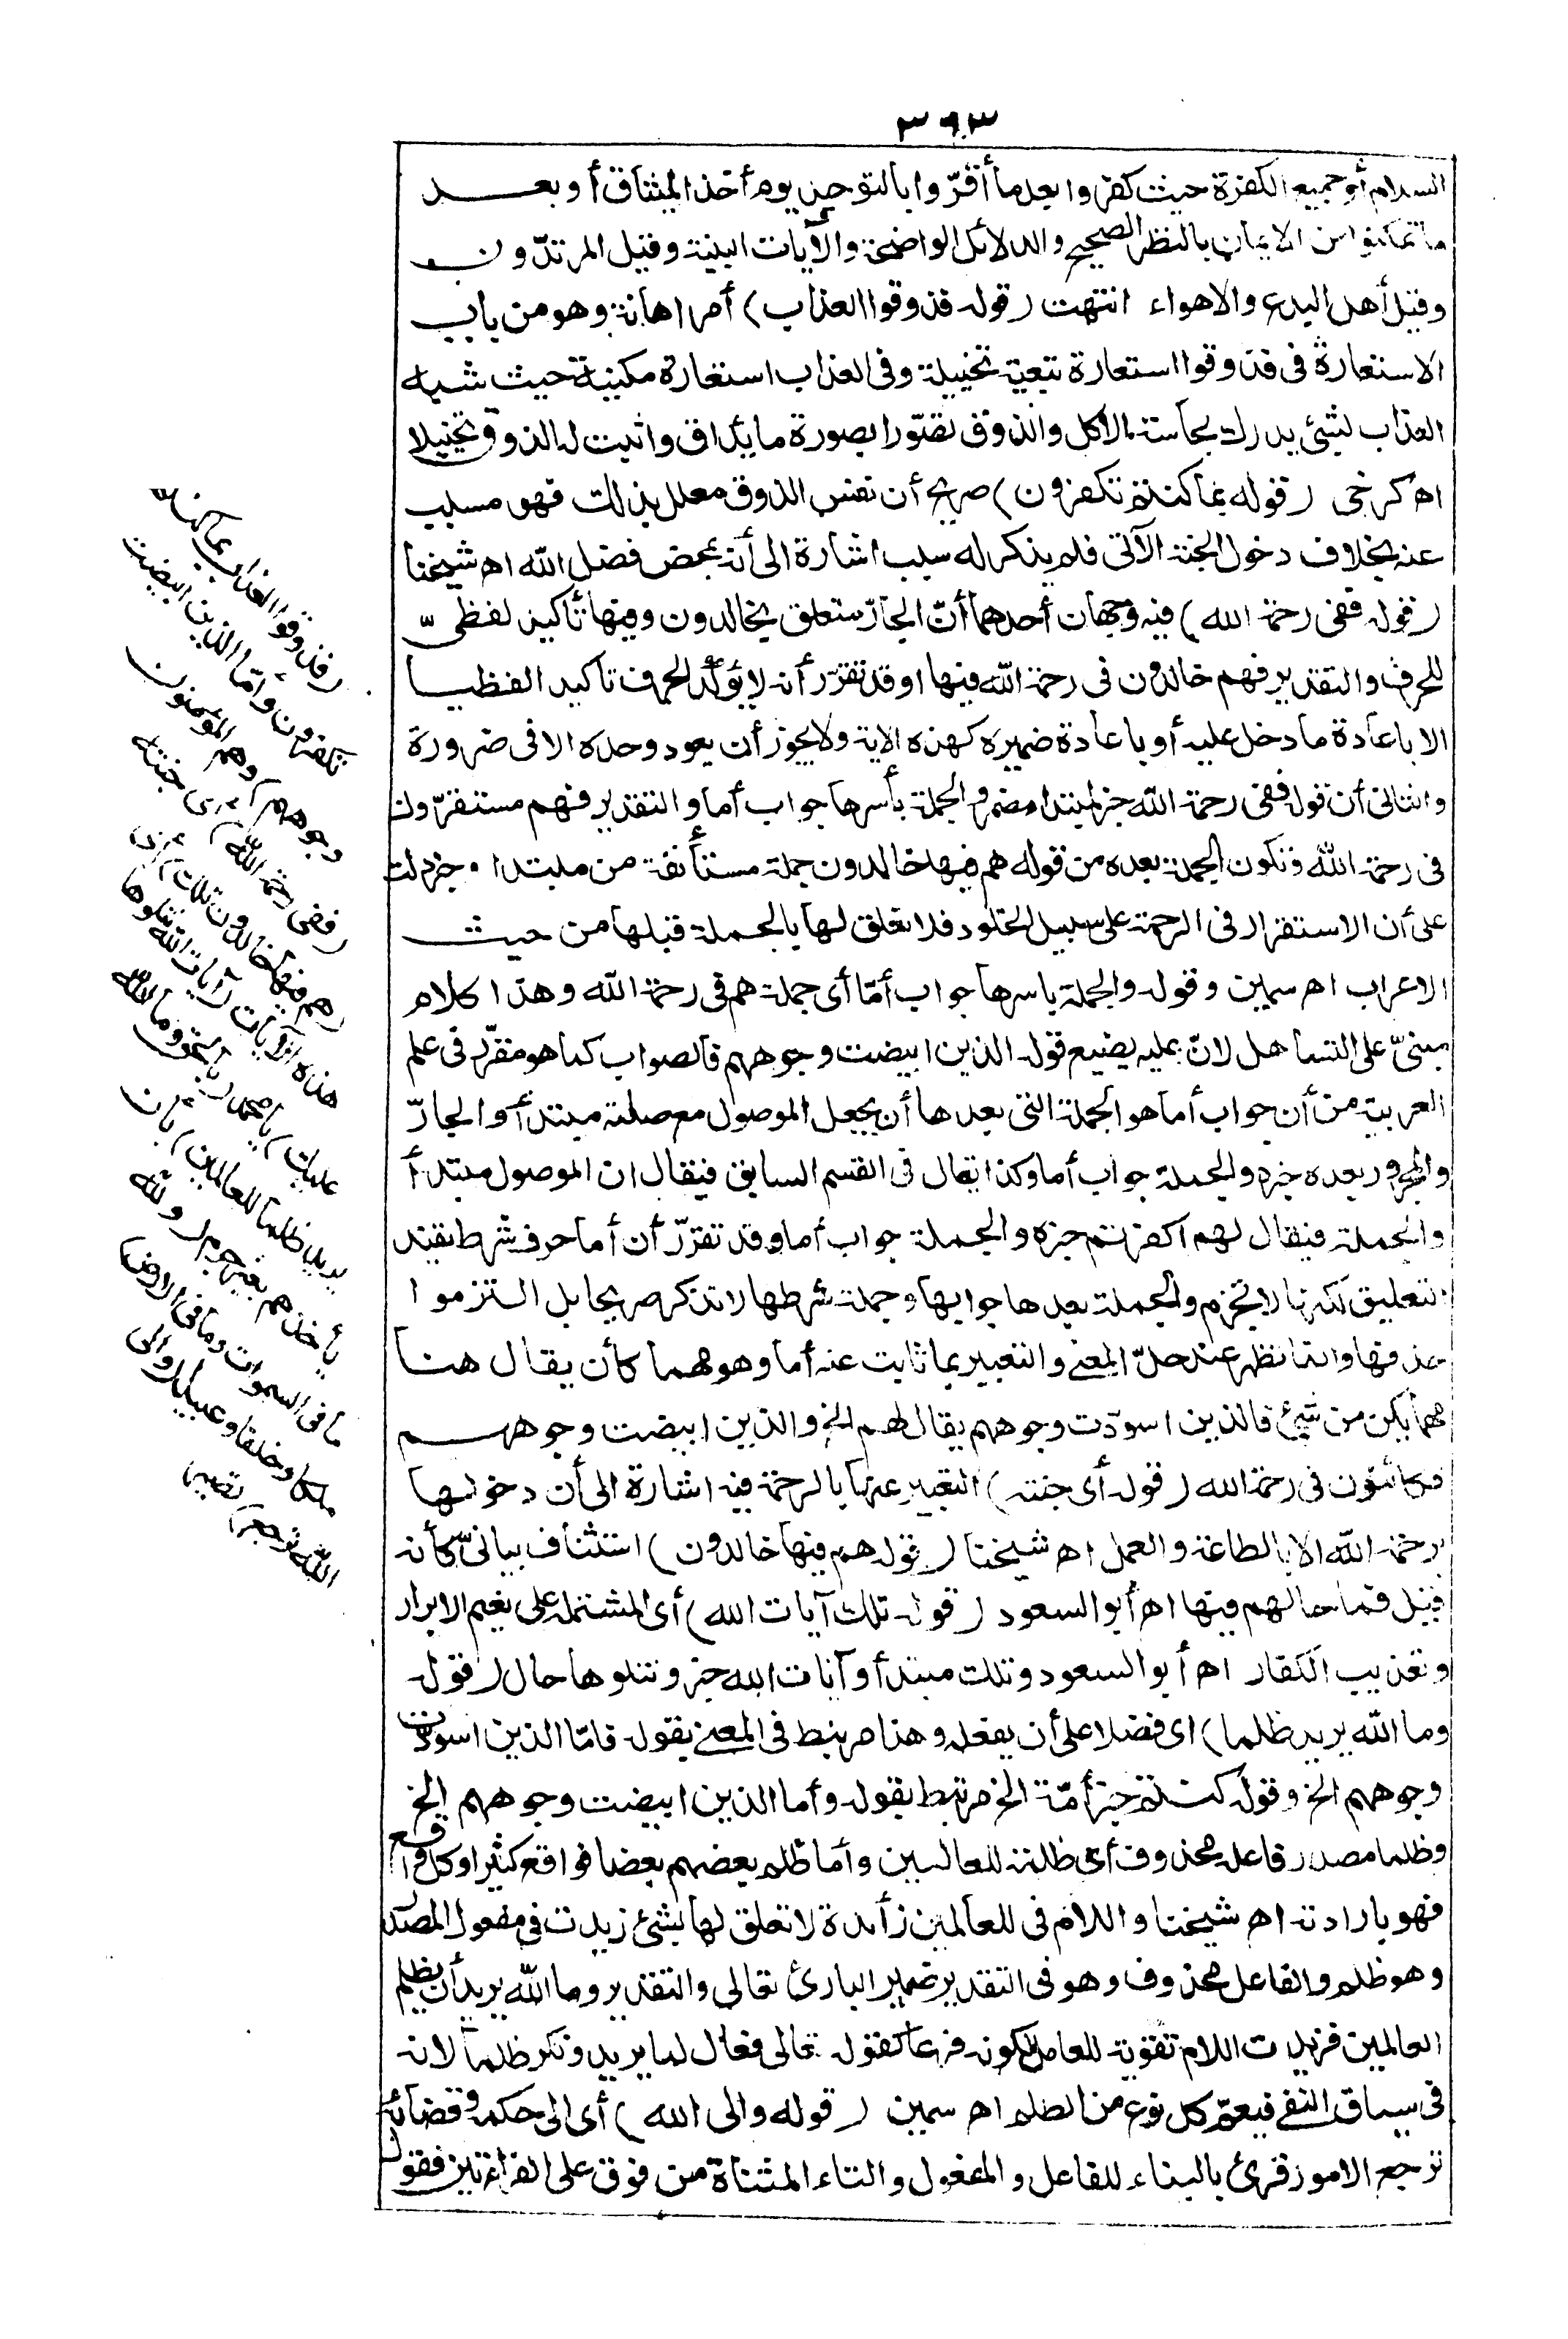 ٣٩٣
السلام أو جميع الكفرة حيث كفروا بعد ما أقرّوا بالتوحيد يوم أخذ الميثاق أو بعد
ما تمكنوا من الايمان بالنظر الصحيح والدلائل الواضحة والآيات البينة وقيل المرتدّون
وقيل أهل البدع والاهواء انتهت (قوله فذوقوا العذاب) أمر اهانة وهو من باب
الاستعارة فى فذوقوا استعارة تبعية تخييلية وفى العذاب استعارة مكنية حيث شبه
العذاب بشئ يدرك بحاسة الاكل والذوق تصوّرا بصورة ما يذاق واثبت له الذوق تخييلا
اه كرخى (قوله بما كنتم تكفرون) صريح أن نفس الذوق معلل بذلك فهو مسبب
عنه بخلاف دخول الجنة الآتى فلم يذكر له سبب اشارة الى أنه بمحض فضل الله اه شيخنا
(قوله ففى رحمة الله) فيه وجهان أحدهما أنّ الجارّ متعلق بخالدون وفيها تأكيد لفظىّ
للحرف والتقدير فهم خالدون فى رحمة الله فيها وقد تقرّر أنه لا يؤكّد الحرف تاكيدا لفظيا
الا باعادة ما دخل عليه أو باعادة ضميره كهذه الاية ولا يجوز أن يعود وحده الا فى ضرورة
والثانى أن قوله ففى رحمة الله خبر لمبتدا مضمر والجملة بأسرها جواب أما والتقدير فهم مستقرّون
فى رحمة الله وتكون الجملة بعده من قوله هم فيها خالدون جملة مستأنفة من مبتدا وخبر دلت
على أن الاستقرار فى الرحمة على سبيل الخلود فلا تعلق لها بالجملة قبلها من حيث
الاعراب اه سمين وقوله والجملة باسرها جواب أمّا أى جملة هم فى رحمة الله وهذا كلام
مبنىّ على التساهل لانّ عليه يضيع قوله الذين ابيضت وجوههم فالصواب كما هو مقرّر فى علم
العربية من أن جواب أما هو الجملة التى بعدها أن يجعل الموصول مع صلته مبتدأ والجارّ
والمجرور بعده خبره والجملة جواب أما وكذا يقال فى القسم السابق فيقال ان الموصول مبتدأ
والجملة فيقال لهم أكفرتم خبره والجملة جواب أما وقد تقرّر أن أما حرف شرط يفيد
التعليق لكنها لا تجزم والجملة بعدها جوابها وجملة شرطها لا تذكر صريحا بل التزموا
حذفها وانما تظهر عند حلّ المعنى والتعبير بما نابت عنه أما وهو مهما كأن يقال هنا
مهما يكن من شئ فالذين اسودّت وجوههم يقال لهم الخ والذين ابيضت وجوههم
فكائنون فى رحمة الله (قوله أى جنته) التعبير عنها بالرحمة فيه اشارة الى أن دخولها
برحمة الله لا بالطاعة والعمل اه شيخنا (قوله هم فيها خالدون) استئناف بيانىّ كأنه
قيل فما حالهم فيها اه أبو السعود (قوله تلك آيات الله) أى المشتملة على نعيم الابرار
وتعذيب الكفار اه أبو السعود وتلك مبتدأ وآيات الله خبر ونتلوها حال (قوله
وما الله يريد ظلما) اى فضلا على أن يفعله وهذا مرتبط فى المعنى بقوله فامّا الذين اسودّت
وجوههم الخ وقوله كنتم خير أمّة الخ مرتبط بقوله وأما الذين ابيضت وجوههم الخ
وظلما مصدر فاعله محذوف أى ظلمه للعالمين وأما ظلم بعضهم بعضا فواقع كثيرا وكل واقع
فهو بارادته اه شيخنا واللام فى للعالمين زائدة لا تعلق لها بشئ زيدت فى مفعول المصدر
وهو ظلم والفاعل محذوف وهو فى التقدير ضمير البارئ تعالى والتقدير وما الله يريد أن يظلم
العالمين فزيدت اللام تقوية للعامل لكونه فرعا كقوله تعالى فعال لما يريد ونكر ظلما لانه
فى سياق النفى فيعمّ كل نوع من الظلم اه سمين (قوله والى الله) أى الى حكمه وقضائه
ترجع الامور قرئ بالبناء للفاعل والمفعول والتاء المثناة من فوق على القراءتين فقول
(فذوقوا العذاب بما كنتم
تكفرون وأمّا الذين ابيضت
وجوههم) وهم المؤمنون
(ففى رحمة الله) أى جنته
(هم فيها خالدون تلك) أى
هذه الآيات (آيات الله نتلوها
عليك) يا محمد (بالحق وما الله
يريد ظلما للعالمين) بأن
يأخذهم بغير جرم (ولله
ما فى السموات وما فى الارض)
ملكا وخلقا وعبيدا (والى
الله ترجع) تصير